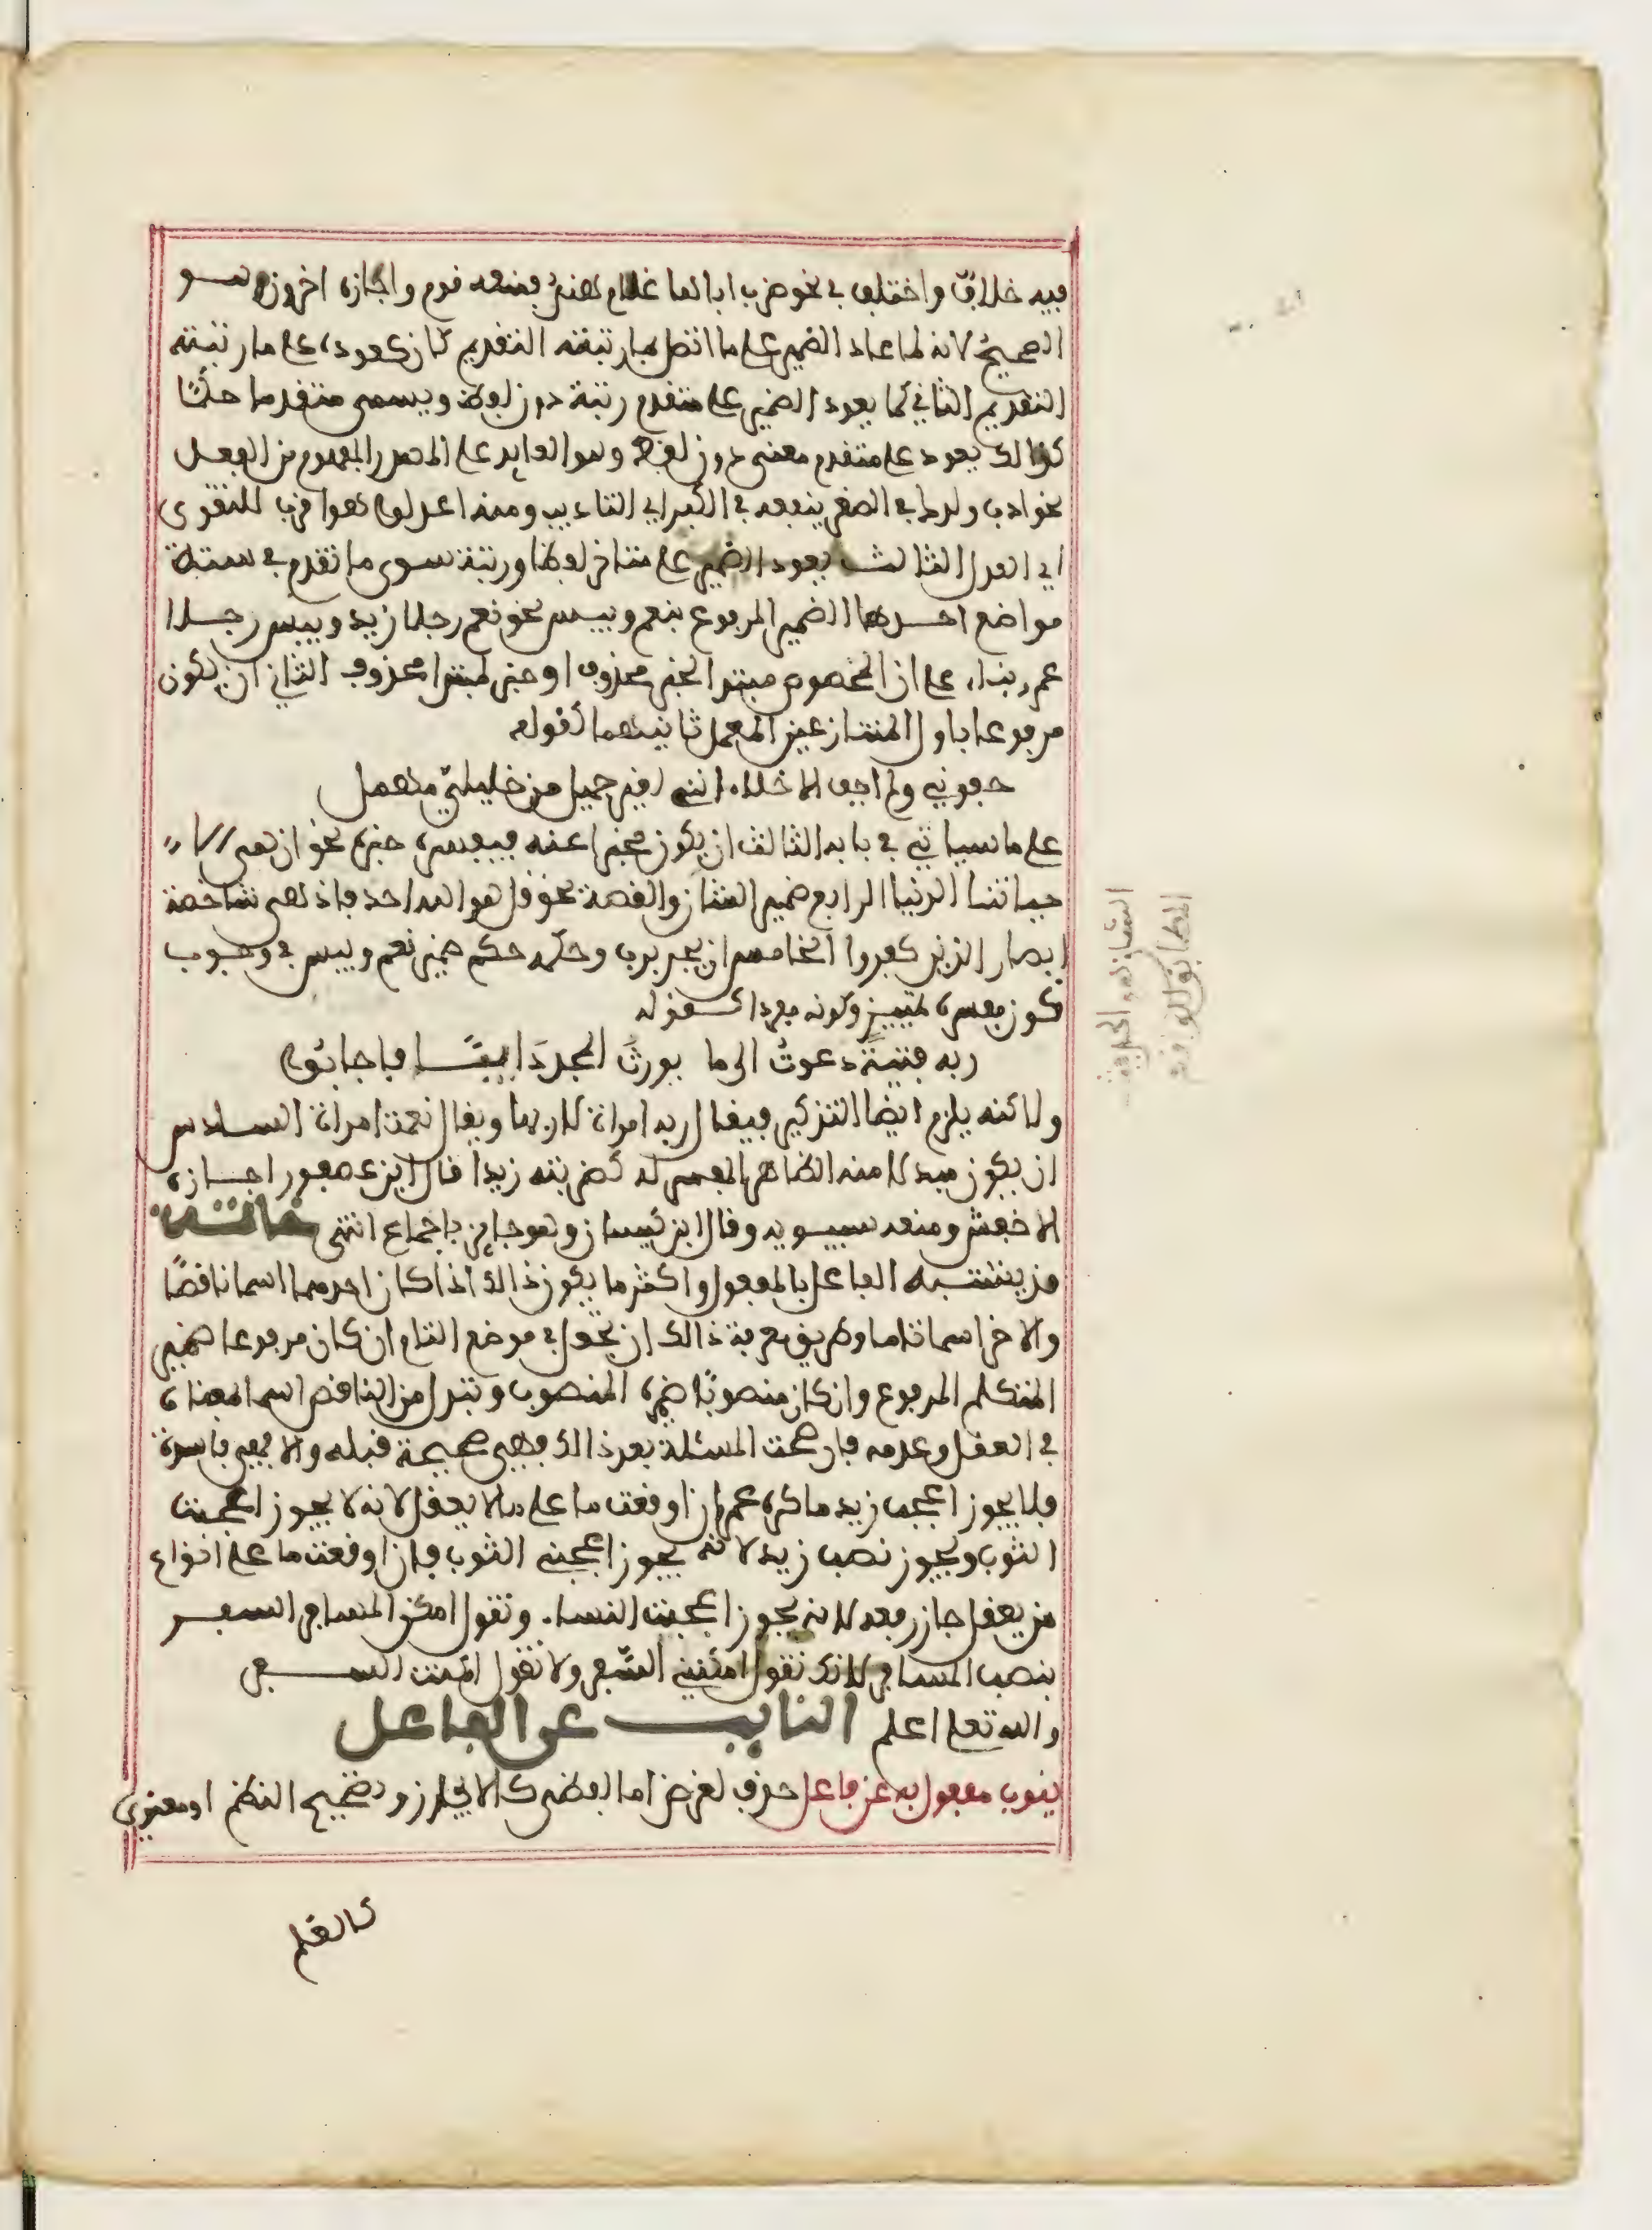 فيه خلافٌ واختلف في نحو ضرب اباها غلام هندٍ فمنعه قوم واجازه اخرون وهو
الصحيح لانه لما عاد الضمير على ما اتصل بما رتبته التقديم كان كعوده على ما رتبته
التقديم الثاني كما يعود الضمير على متقدم رتبة دون لفظ ويسمى متقدما حكمًا
كذالك يعود على متقدم معنى دون لفظ وهو العايد على المصدر المفهوم من الفعل
نحو ادب ولدك في الصغر ينفعه في الكبر اي التاديب ومنه اعدلوا هو اقرب للتقوى
اي العدل الثالث يعود الضمير على متاخر لفظا ورتبة سوى ما تقدم في ستة
مواضع احدها الضمير المرفوع بنعم وبيس نحو نعم رجلا زيد وبيس رجلا
عمر بناء على ان المخصوص مبتدا لخبر محذوف او خبر لمبتدا محذوف الثاني ان يكون
مرفوعا باول المتنازعين المعمل ثانيهما كقوله
جفوني ولم اجف الاخلاء انني لغير جميل من خليلي مهمل
على ما سياتي في بابه الثالث ان يكون مخبرا عنه فيفسره خبره نحو ان هي الا
حياتنا الدنيا الرابع ضمير الشان والقصة نحو قل هو الله احد فاذا هي شاخصة
ابصار الذين كفروا الخامس ان يجر برب وحكمه حكم ضمير نعم وبيس في وجوب
كون مفسره تمييز وكونه مفردا كقوله
ربه فتيةً دعوتُ الى ما يورثُ المجدَ دايبًا فاجابُوا
ولاكنه يلزم ايضا التذكير فيقال ربه امراة لا ربها ويقال نعمت امراة السادس
ان يكون مبدلا منه الظاهر المفسر له كضربته زيدا قال ابن عصفور اجازه
الاخفش ومنعه سيبويه وقال ابن كيسان وهو جايز باجماع انتهى خاتمة
قد يشتبه الفاعل بالمفعول واكثر ما يكون ذالك اذا كان احدهما اسما ناقصًا
والاخر اسما تاما وطريق معرفة ذالك ان تجعل في موضع التام ان كان مرفوعا ضمير
المتكلم المرفوع وان كان منصوبًا ضميره المنصوب وتبدل من الناقص اسما بمعناه
في العقل وعدمه فان صحت المسئلة بعد ذالك فهي صحيحة قبله والا فهي فاسدة
فلا يجوز اعجب زيد ما كره عمر ان اوقعت ما على ما لا يعقل لانه لا يجوز اعجبت
الثوب ويجوز نصب زيد لانه يجوز اعجبني الثوب فان اوقعت ما على انواع
من يعقل جاز رفعه لانه يجوز اعجبت النساء وتقول امكن المسافر السفر
بنصب المسافر لانك تقول امكنني السفر ولا تقول امكنت السفر
والله تعلى اعلم النايب عن الفاعل
ينوب مفعول به عن فاعل حذف لغرض اما لفظي كالايجاز وتصحيح النظم او معنوي
كالعلم